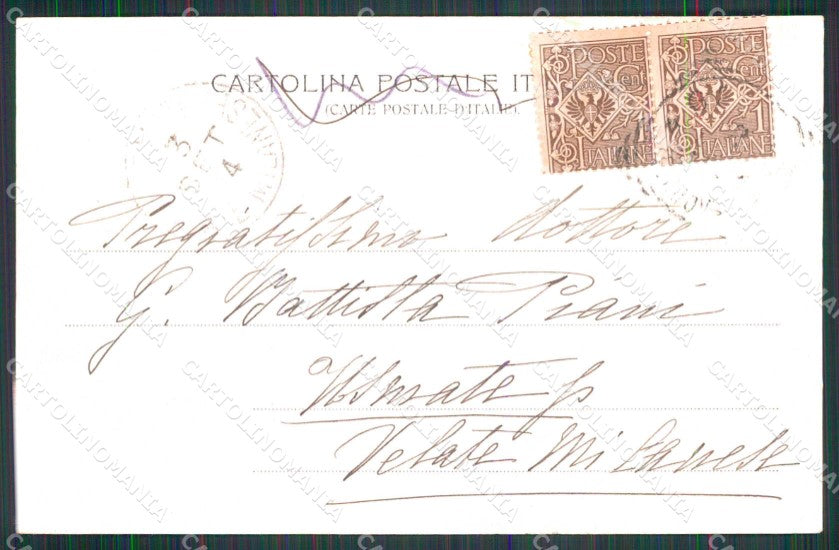 CARTOLINA POSTALE IT
(CARTE POSTALE D'ITALIE)
POSTE
Cent
1
ITALIANE
POSTE
Cent
1
ITALIANE
3
SET
4
Pregiatissimo dottore
G. Battista Piani
Usmate p
Velate Milanese
CARTOLINOMANIA